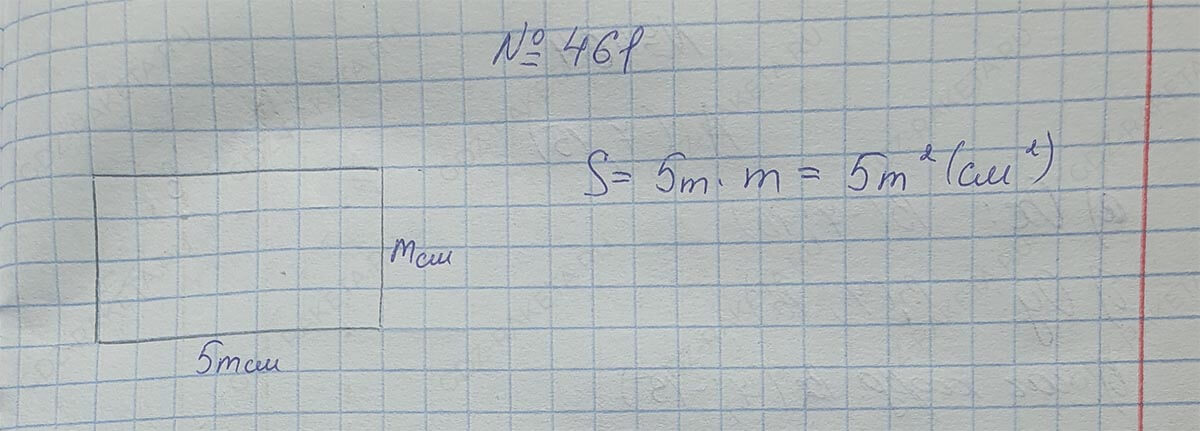 № 461
S = 5m · m = 5m² (см²)
m см
5m см